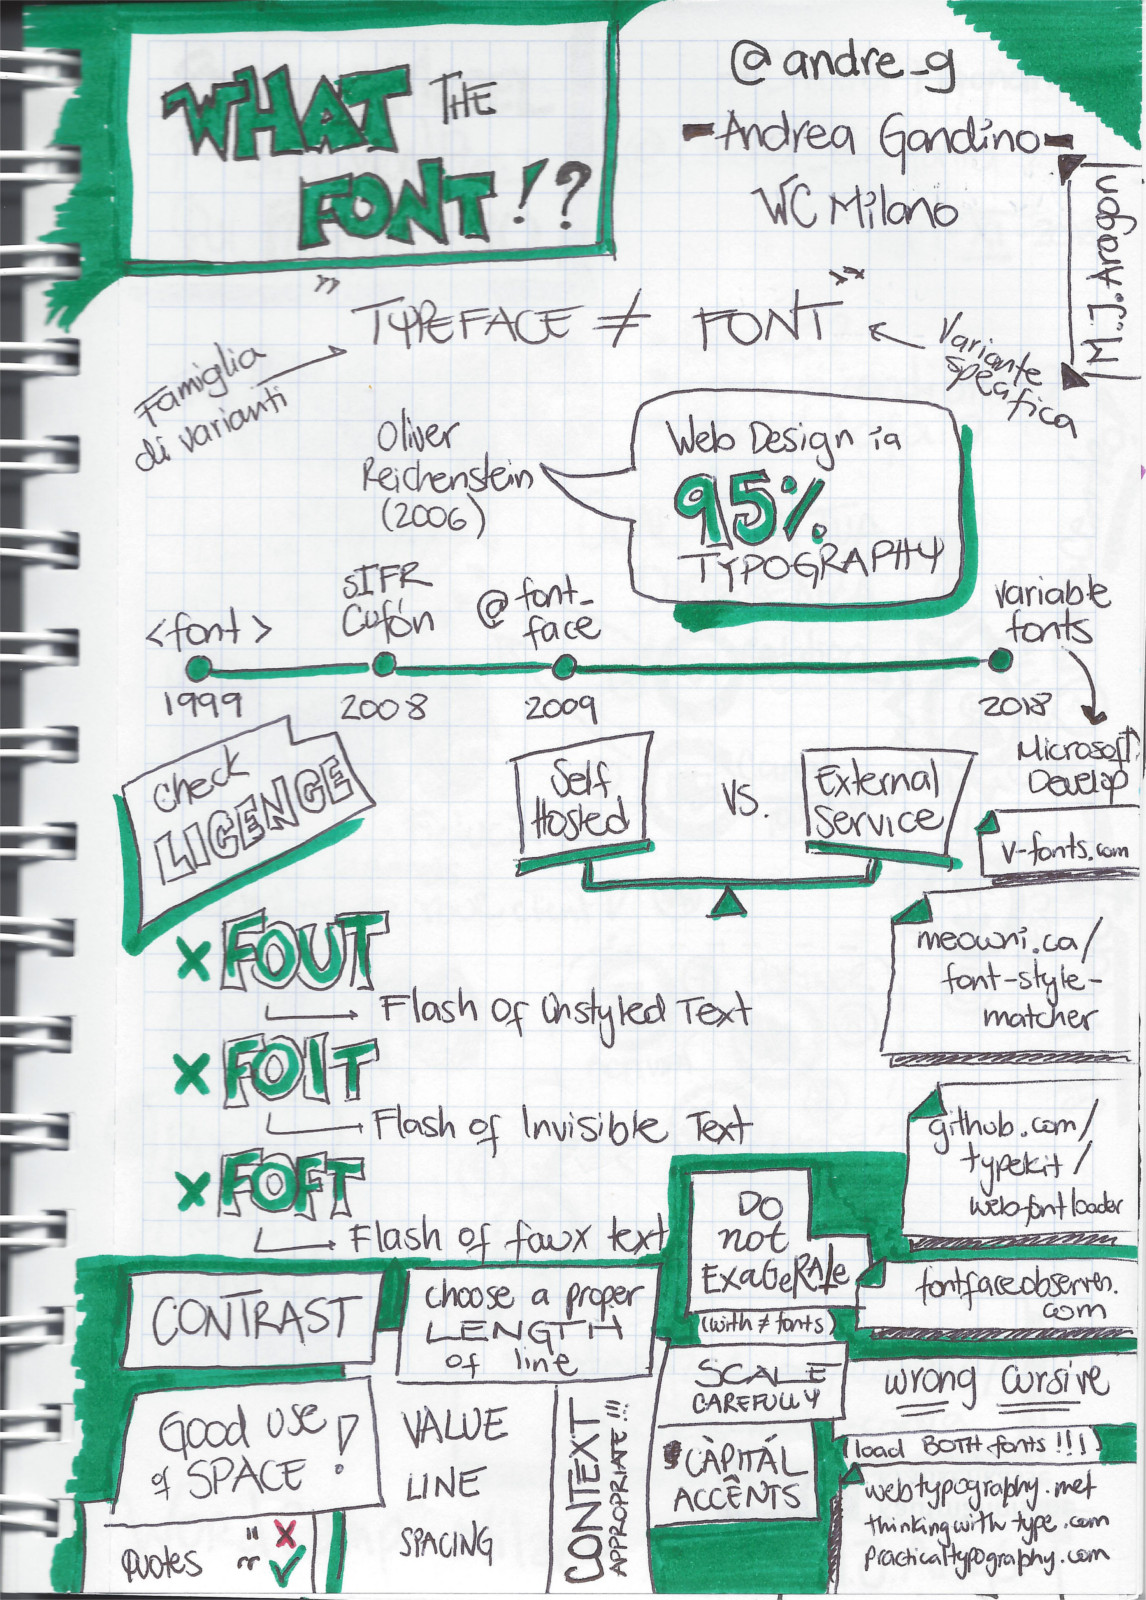 WHAT THE
FONT!?
@andre_g
- Andrea Gandino -
WC Milano
M.J.Aragon
" TYPEFACE ≠ FONT "
Famiglia
di varianti
Variante
specifica
Oliver
Reichenstein
(2006)
Web Design is
95%
TYPOGRAPHY
<font>
sIFR
Cufón
@font_
face
variable
fonts
1999
2008
2009
2018
Microsoft
Develop
Check
LICENCE
Self
Hosted
VS.
External
Service
v-fonts.com
meowni.ca/
font-style-
matcher
x FOUT
Flash Of Unstyled Text
x FOIT
Flash of Invisible Text
x FOFT
Flash of faux text
github.com/
typekit/
webfontloader
fontfaceobserver.
com
DO
not
ExaGeRAte
(with ≠ fonts)
CONTRAST
choose a proper
LENGTH
of line
SCALE
CAREFULLY
wrong cursive
(load BOTH fonts!!!)
Good use
of SPACE!
VALUE
LINE
SPACING
CONTEXT
APPROPRIATE!!!
CÀPITÁL
ACCÊNTS
webtypography.net
thinkingwithtype.com
practicaltypography.com
QUOTES " x
" ✓